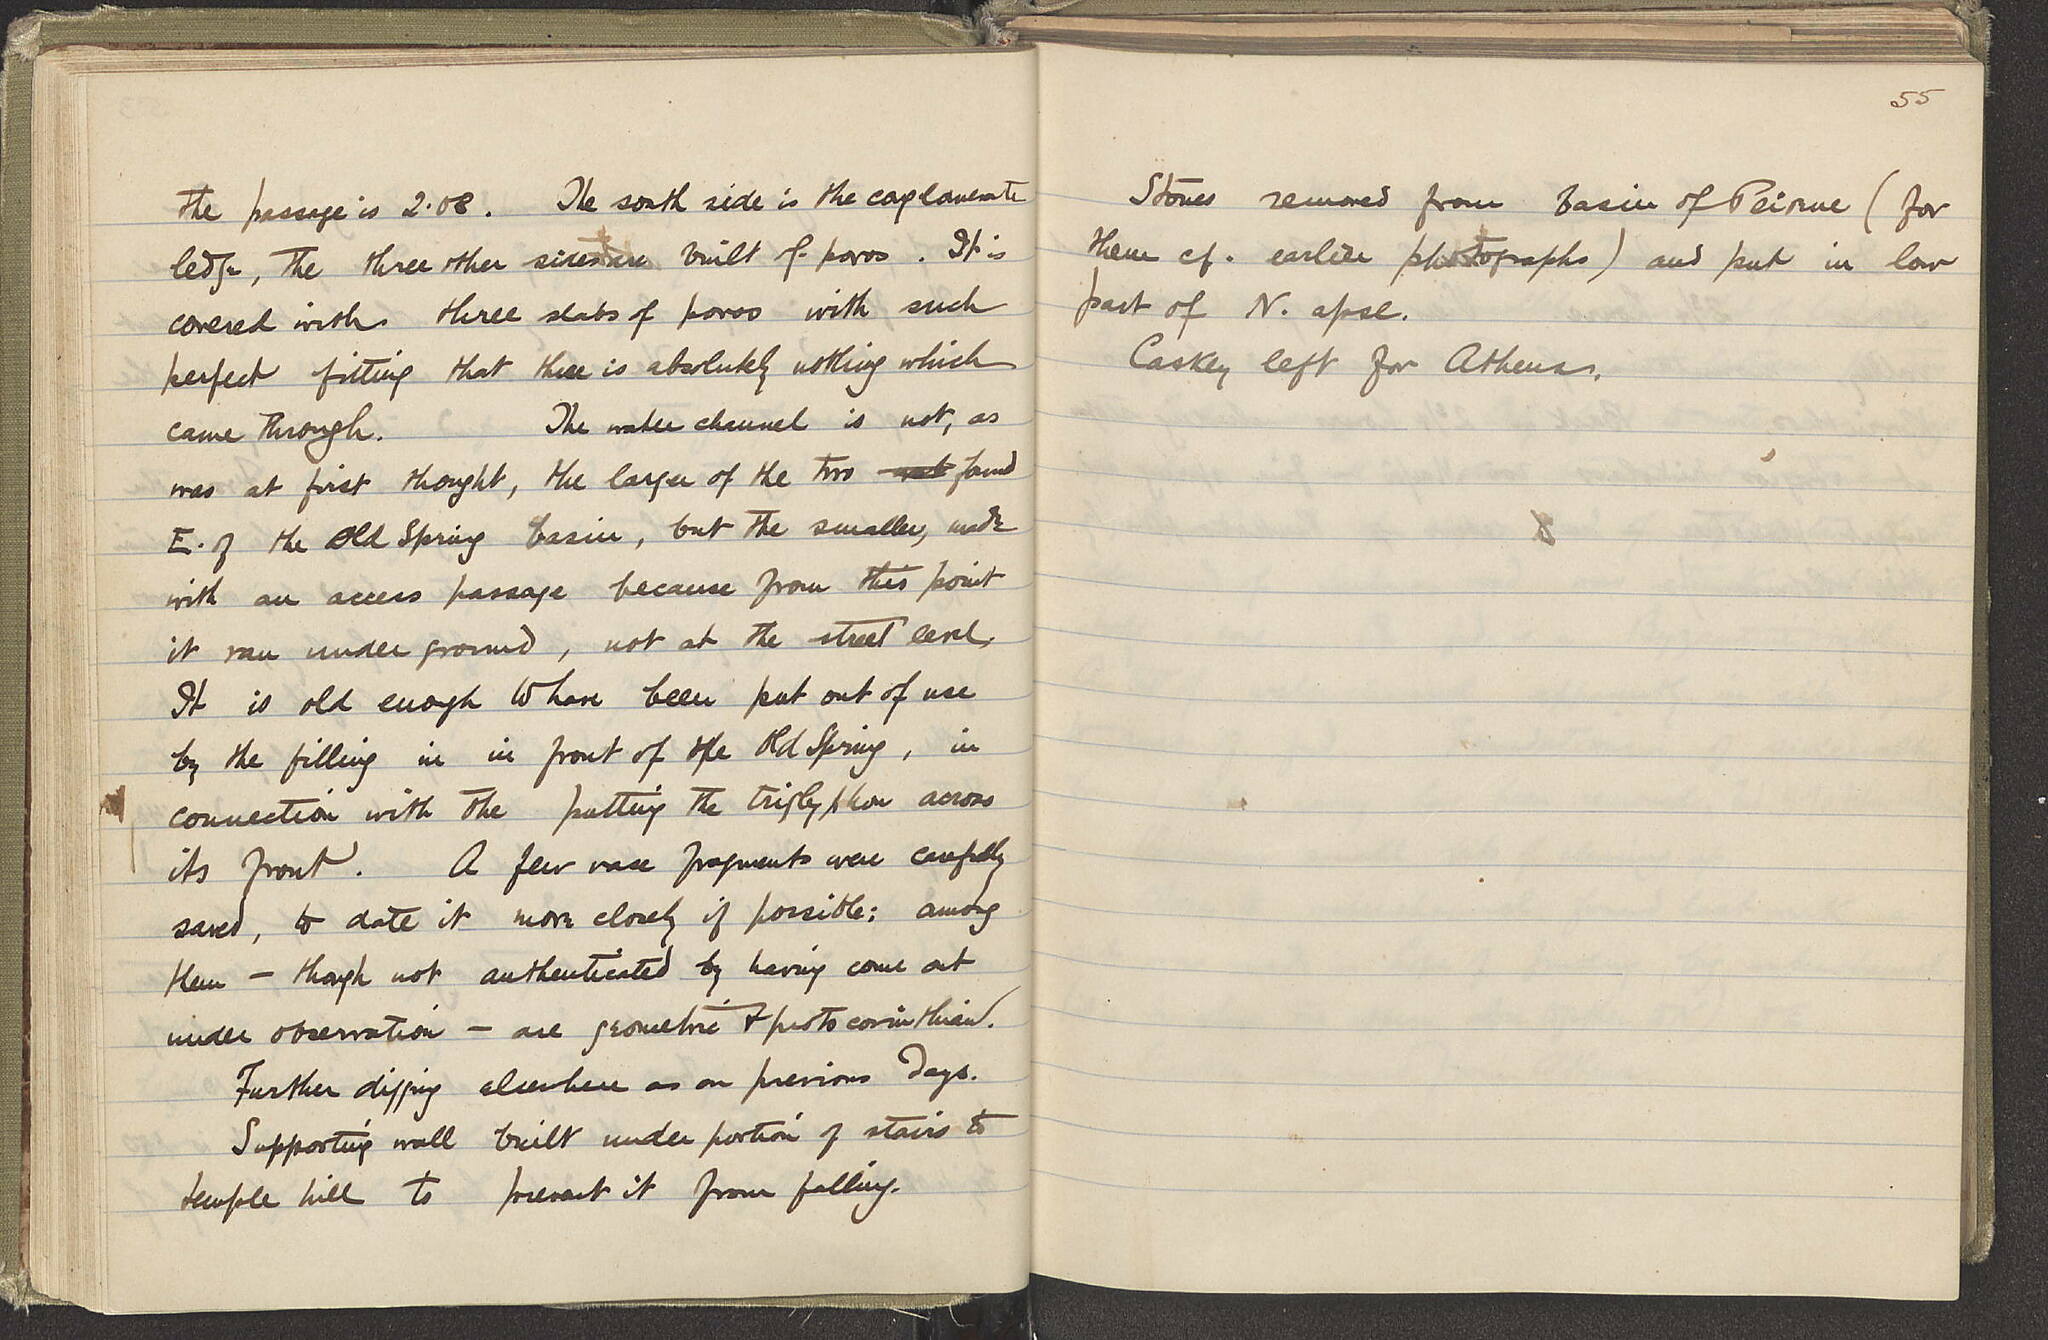 the passage is 2.08. The south side is the conglomerate
ledge, the three other sides are built of poros. It is
covered with three slabs of poros with such
perfect fitting that there is absolutely nothing which
came through. The water channel is not, as
was at first thought, the larger of the two found
E. of the Old Spring basin, but the smaller, made
with an access passage because from this point
it ran under ground, not at the street level.
It is old enough to have been put out of use
by the filling in in front of the Old Spring, in
connection with the putting the triglyphon across
its front. A few vase fragments were carefully
saved, to date it more closely if possible: among
them – though not authenticated by having come out
under observation – are geometric & proto corinthian.
Further digging elsewhere as on previous days.
Supporting wall built under portion of stairs to
temple hill to prevent it from falling.
55
Stones removed from basin of Peirene (for
them cf. earlier photographs) and put in low
part of N. apse.
Caskey left for Athens.